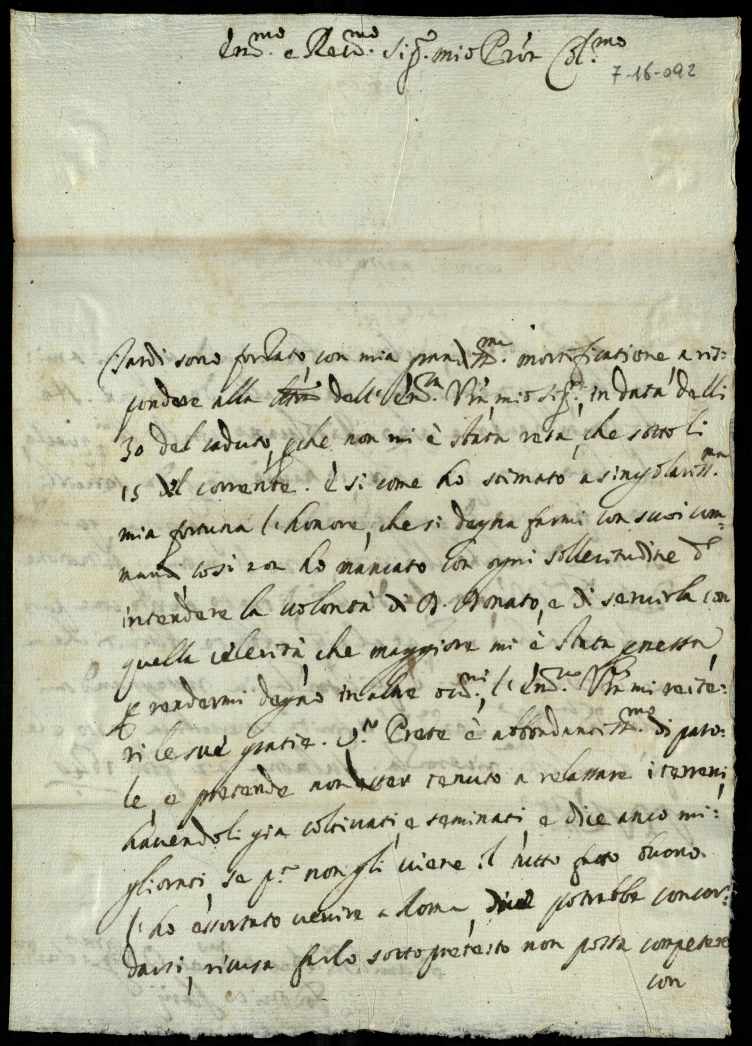 Em.mo e Rev.mo Sig.r mio P'ron Col.mo
7-16-092
Tardi sono forzato, con mia grandiss.ma mortificatione a ris:
pondere alla dell' Em.za V'ra mio Sig.re, in data delli
30 del caduto, p che non mi è stata resa, che sotto li
15 del corrente. E si come ho stimato a singolariss.ma
mia fortuna l'honore, che si degna farmi con suoi com-
mandi, così non ho mancato con ogni sollecitudine d'
intendere la volontà di D. Donato, e di servirla con
quella celerità, che maggiore mi è stata p messa,
p rendermi degno in altre occ.ni, l' Em.za V'ra mi reite:
ri le sue gratie. Il Prete è abbondantiss.mo di paro:
le, e pretende non esser tenuto a relassare i terreni,
havendoli già coltivati, e seminati, e dice anco mi:
gliorati, se p.a non gli viene il tutto fatto buono.
l'ho essortato venire a Roma, dove potrebbe concor:
darsi, ricusa farlo sotto pretesto non possa competere
con